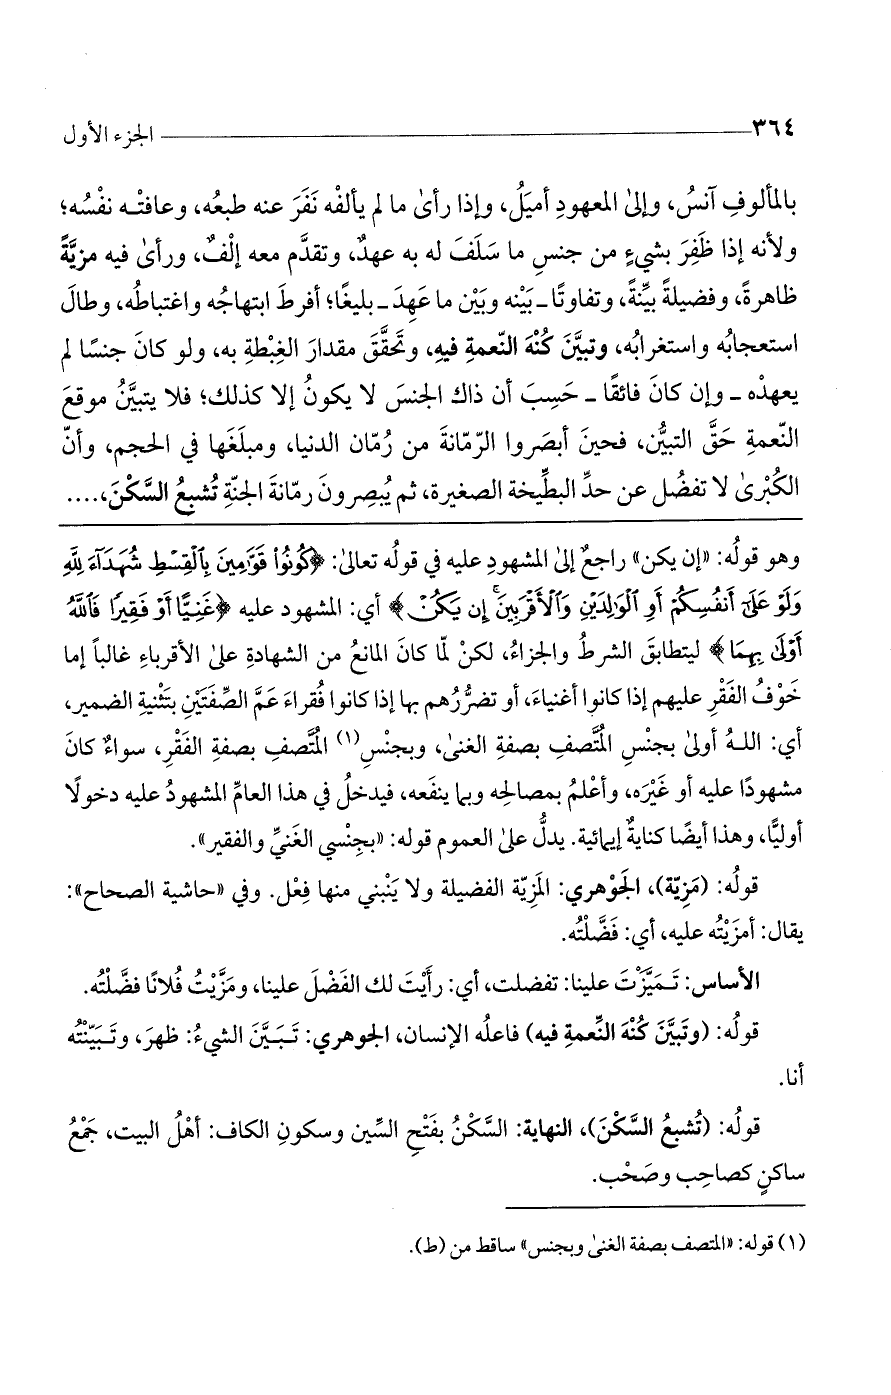 ٣٦٤ الجزء الأول
بالمألوفِ آنسُ، وإلىٰ المعهودِ أميَلُ، وإذا رأىٰ ما لم يألفْه نَفَرَ عنه طبعُه، وعافتْه نفْسُه؛
ولأنه إذا ظَفِرَ بشيءٍ من جنسِ ما سَلَفَ له به عهدٌ، وتقدَّم معه إلْفٌ، ورأىٰ فيه مزيَّةً
ظاهرةً، وفضيلةً بيِّنةً، وتفاوتًا ـ بَيْنه وبَيْن ما عَهِدَ ـ بليغًا؛ أفرطَ ابتهاجُه واغتباطُه، وطالَ
استعجابُه واستغرابُه، وتبيَّنَ كُنْهَ النّعمةِ فيهِ، وتحَقَّقَ مقدارَ الغِبْطةِ به، ولو كانَ جنسًا لم
يعهدْه ـ وإن كانَ فائقًا ـ حَسِبَ أن ذاك الجنسَ لا يكونُ إلا كذلك؛ فلا يتبيَّنُ موقعَ
النّعمةِ حَقَّ التبيُّن، فحينَ أبصَروا الرّمّانةَ من رُمّان الدنيا، ومبلَغَها في الحجم، وأنّ
الكُبْرىٰ لا تفضُل عن حدِّ البطِّيخة الصغيرة، ثم يُبصِرونَ رمّانةَ الجنّةِ تُشبِعُ السَّكْنَ،....
وهو قولُه: «إن يكن» راجعٌ إلىٰ المشهودِ عليه في قولُه تعالىٰ: ﴿كُونُوا۟ قَوَّٰمِينَ بِٱلْقِسْطِ شُهَدَآءَ لِلَّهِ
وَلَوْ عَلَىٰٓ أَنفُسِكُمْ أَوِ ٱلْوَٰلِدَيْنِ وَٱلْأَقْرَبِينَ ۚ إِن يَكُنْ﴾ أي: المشهود عليه ﴿غَنِيًّا أَوْ فَقِيرًا فَٱللَّهُ
أَوْلَىٰ بِهِمَا﴾ ليتطابقَ الشرطُ والجزاءُ، لكنْ لمّا كانَ المانعُ من الشهادةِ علىٰ الأقرباءِ غالباً إما
خَوْفُ الفَقْرِ عليهم إذا كانوا أغنياءَ، أو تضرُّرُهم بها إذا كانوا فُقراءَ عَمَّ الصِّفَتَيْنِ بتَثْنيةِ الضمير،
أي: اللهُ أولىٰ بجنْسِ المُتَّصفِ بصفةِ الغنىٰ، وبجنْسِ(١) المُتَّصفِ بصفةِ الفَقْرِ، سواءٌ كانَ
مشهودًا عليه أو غَيْرَه، وأعْلمُ بمصالحِه وبما ينفَعه، فيدخلُ في هذا العامِّ المشهودُ عليه دخولًا
أوليًّا، وهذا أيضًا كنايةٌ إيمائية. يدلُّ علىٰ العمومِ قوله: «بجِنْسي الغَنيِّ والفقير».
قولُه: (مَزِيّة)، الجَوْهري: المَزِيّة الفضيلة ولا يَنْبني منها فِعْل. وفي «حاشية الصحاح»:
يقال: أمزَيْتُه عليه، أي: فَضَّلْتُه.
الأساس: تَمَيَّزْتَ علينا: تفضلت، أي: رأَيْتَ لك الفَضْلَ علينا، ومَزَّيْتُ فُلانًا فضَّلْتُه.
قولُه: (وتَبيَّنَ كُنْهَ النِّعمةِ فيه) فاعلُه الإنسان، الجوهري: تَبَيَّنَ الشيءُ: ظهرَ، وتَبَيّنْتُه
أنا.
قولُه: (تُشبِعُ السَّكْنَ)، النهاية: السَّكْنُ بفَتْحِ السِّين وسكونِ الكاف: أهْلُ البيت، جَمْعُ
ساكنٍ كصاحِب وصَحْب.
(١) قوله: «المتصف بصفة الغنىٰ وبجنس» ساقط من (ط).